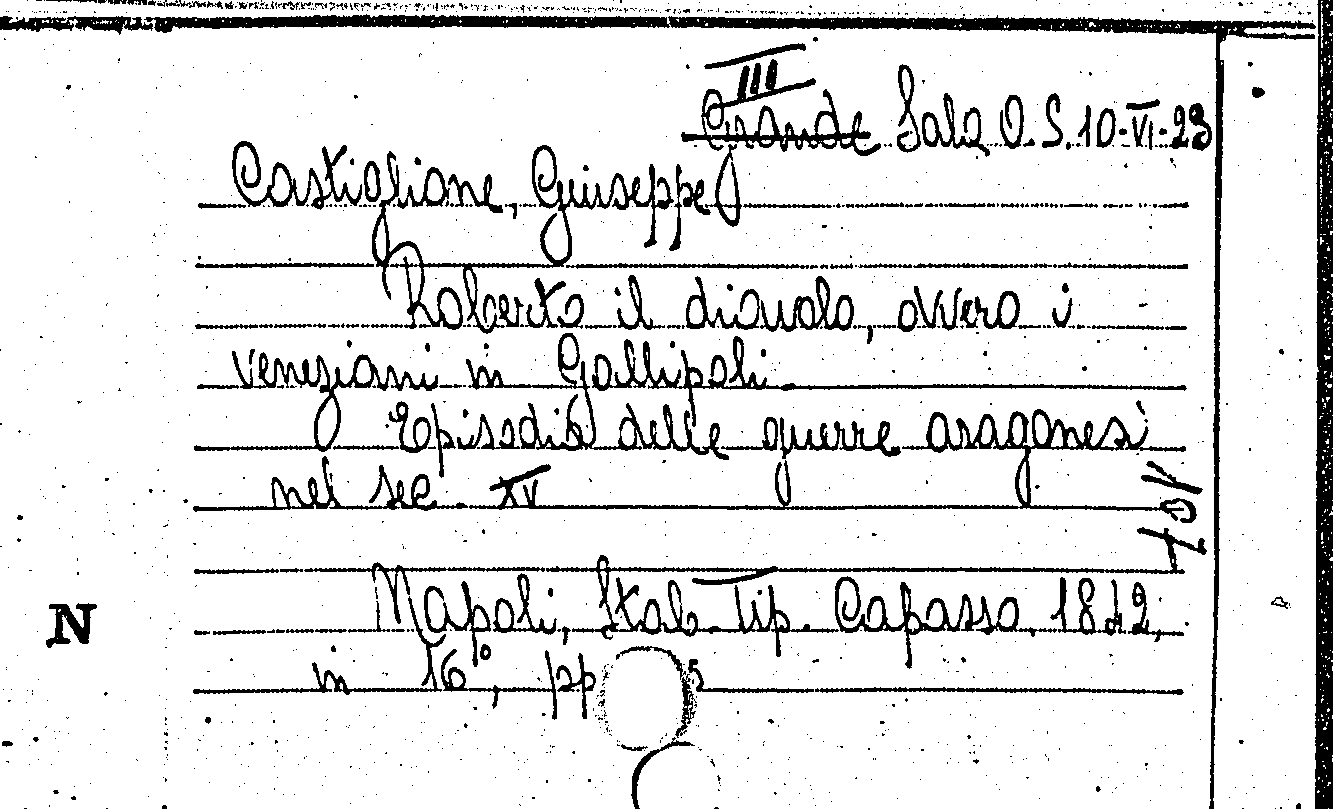 III
Grande Sala O. S. 10-VI-23
Castiglione, Giuseppe
Roberto il diavolo, ovvero i
veneziani in Gallipoli.
Episodio delle guerre aragonesi
nel sec. XV
N
Napoli, Stab. Tip. Capasso, 1842,
in 16°, pp